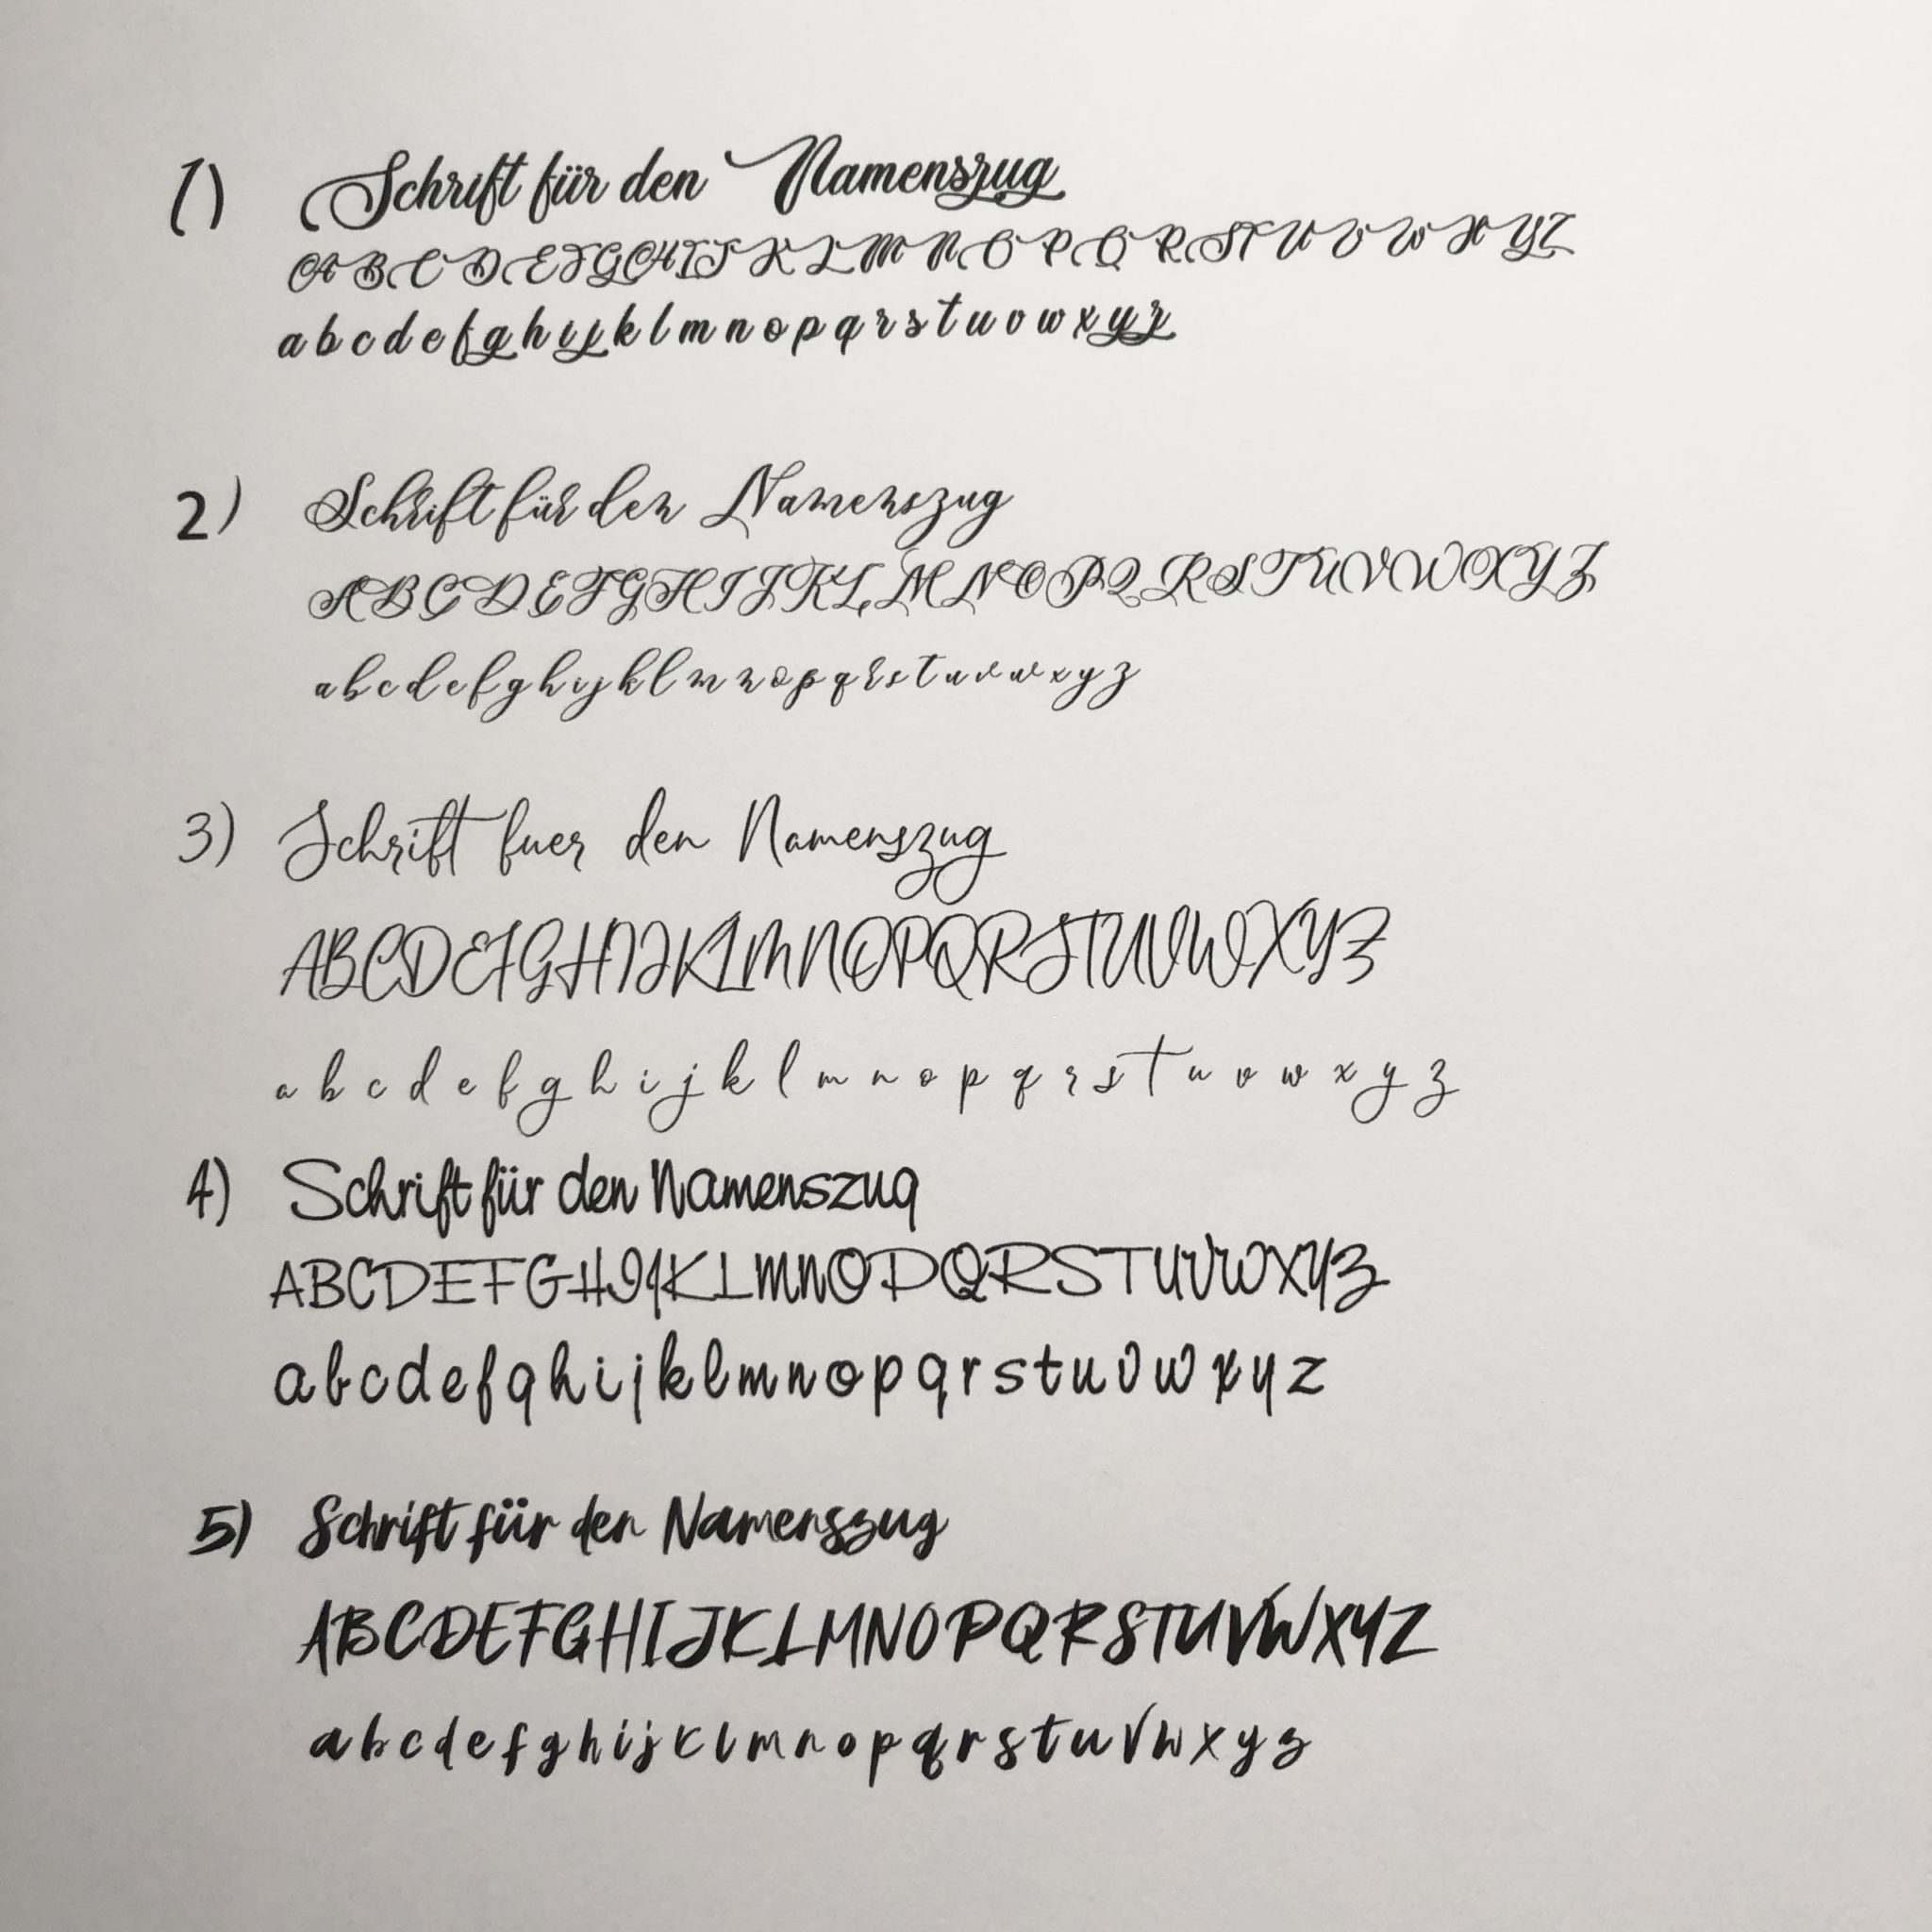 1) Schrift für den Namenszug
A B C D E F G H I J K L M N O P Q R S T U V W X Y Z
a b c d e f g h i j k l m n o p q r s t u v w x y z
2) Schrift für den Namenszug
A B C D E F G H I J K L M N O P Q R S T U V W X Y Z
a b c d e f g h i j k l m n o p q r s t u v w x y z
3) Schrift fuer den Namenszug
A B C D E F G H I J K L M N O P Q R S T U V W X Y Z
a b c d e f g h i j k l m n o p q r s t u v w x y z
4) Schrift für den Namenszug
A B C D E F G H I J K L M N O P Q R S T U V W X Y Z
a b c d e f g h i j k l m n o p q r s t u v w x y z
5) Schrift für den Namenszug
A B C D E F G H I J K L M N O P Q R S T U V W X Y Z
a b c d e f g h i j k l m n o p q r s t u v w x y z